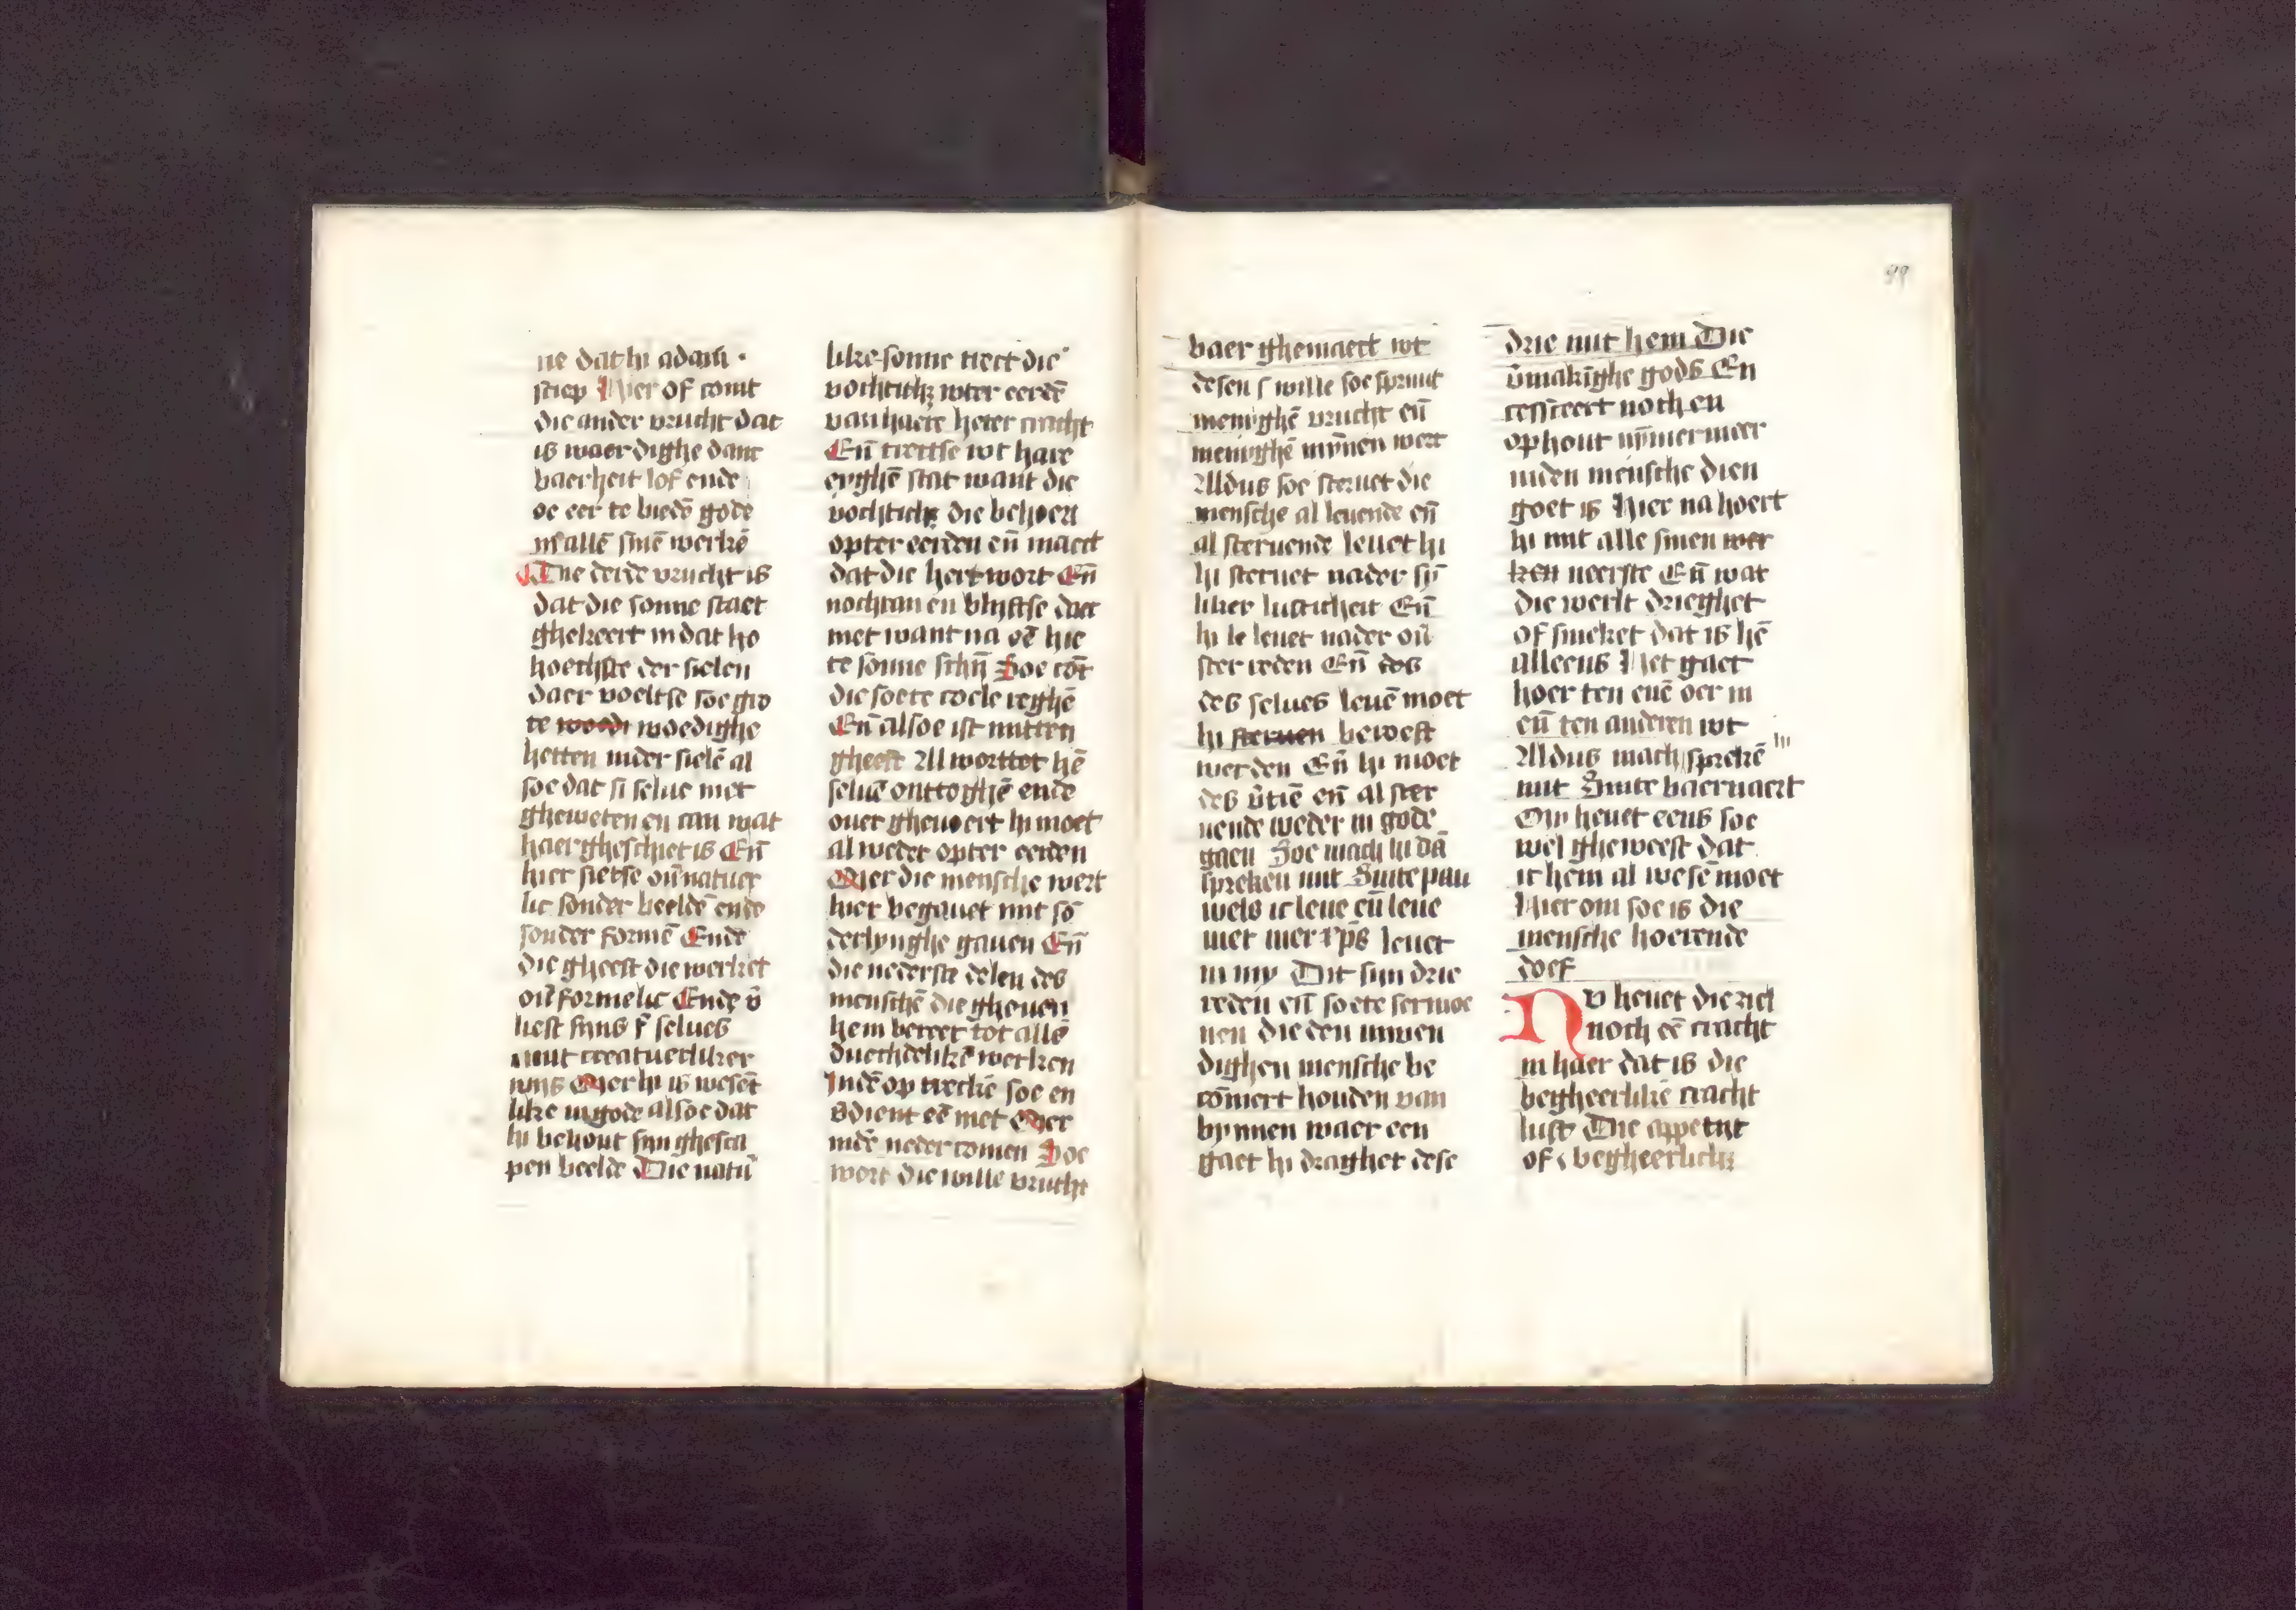 ne dat hi adam ·
sciep Hier of comt
die ander vrucht dat
is waerdighe danc
baerheit lof ende
oe eer te biedē gode
in allē sinē werkē
Die derde vrucht is
dat die sonne staet
ghekeert in dat ho
hoechste der sielen
daer voeltse soe gro
te woedi woedighe
hetten inder sielē al
soe dat si selue niet
gheweten en can wat
haer ghesciet is Eñ
hier sietse ou̅natuer
lic sonder beeldē ende
sonder formē Ende
die gheest die werket
ou̅formelic Ende v̄
liest syns selues
nut creatuerliker
wys Mer hi is wesēt
like in gode alsoe dat
hi behout syn ghesca
pen beelde Die natu̅
like sonne trect die
vochticħ wter eerdē
van haere heter cracht
Eñ trectse wt hare
eyghē stat want die
vochticħ die behoert
opter eerden eñ maect
dat die hert wort Eñ
nochtan en blyftse daer
niet want na dē hie
te sonne schyn Soe cōt
die soete coele reghē
Eñ alsoe ist mitten
gheest Al worttet hē
seluē onttoghē ende
ouer gheuoert hi moet
al weder opter eerden
Mer die mensche wert
hier begauet mit sō
derlynghe gauen Eñ
die nederste delen des
menschē die gheuen
hem bereet tot allē
duechdelikē werken
Indē op treckē soe en
v̄dient eē niet Mer
indē neder comen Soe
wort die wille vrucht
baer ghemaect wt
desen s wille soe spruut
menighē vrucht eñ
menighē mȳnen wert
Aldus soe steruet die
mensche al leuende eñ
al steruende leuet hi
hi steruet nader sȳ
liker lusticheit Eñ
hi le leuet nader ou̅
ster reden Eñ des
des selues leuē moet
hi steruen beroeft
werden Eñ hi moet
des v̄tiē eñ al ster
uende weder in gode
gaen Soe mach hi dā
spreken mit Sinte pau
wels ic leue eñ leue
niet mer xp̄s leuet
in my Dit syn drie
reden eñ soete sermoe
nen die den inwen
dighen mensche be
cōmert houden van
bynnen waer een
gaet hi draghet dese
drie mit hem Die
v̄makighe gods En
cesseert noch en
ophout nȳmermeer
inden mensche dien
goet is Hier na hoert
hi mit alle sinen wer
ken neerste Eñ wat
die werlt drieghet
of smeket dat is hē
alleens Het gaet
hoer ten enē oer in
eñ ten anderen wt
Aldus mach hi sprekē
mit Sinte baernaert
My heuet eens soe
wel gheweest dat
ic hem al wesē moet
Hier om soe is die
mensche hoerende
doef
Nv heuet die ziel
noch eē cracht
in haer dat is die
begheerlikē cracht
lust Die appetijt
of begheerlicħ